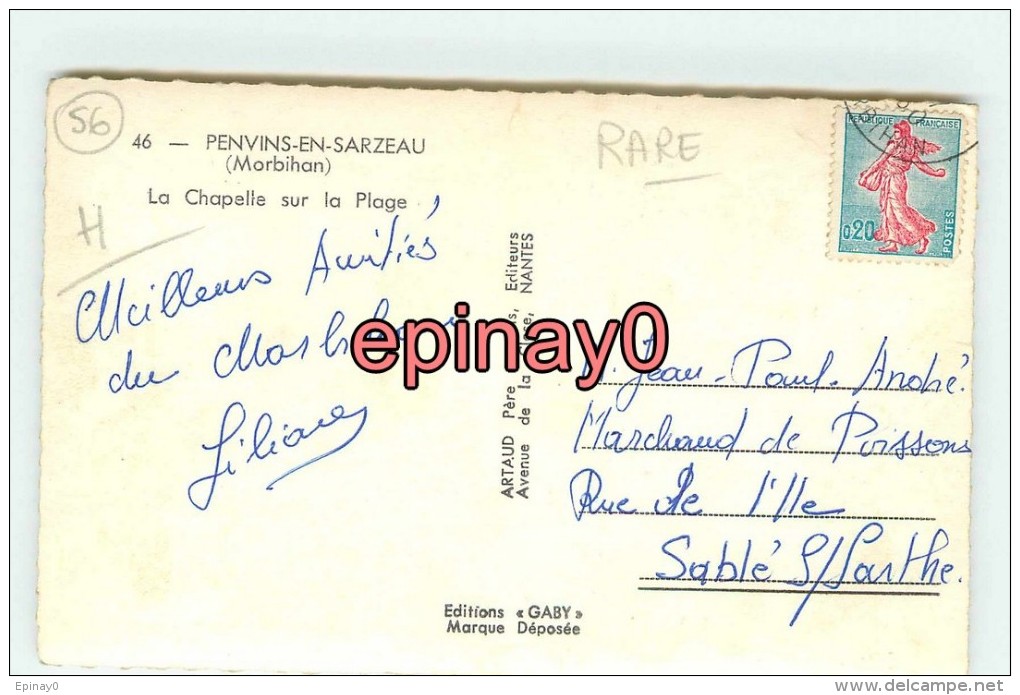 56
46 — PENVINS-EN-SARZEAU
(Morbihan)
La Chapelle sur la Plage
H
RARE
RÉPUBLIQUE FRANÇAISE
0,20
POSTES
Meilleures Amitiés
du
Liliane
ARTAUD Père Editeurs
Avenue de la NANTES
epinay0
M. Jean-Paul-André.
Marchand de Poissons
Rue de l'Ile
Sablé S/Sarthe.
Editions « GABY »
Marque Déposée
Epinay0
www.delcampe.net